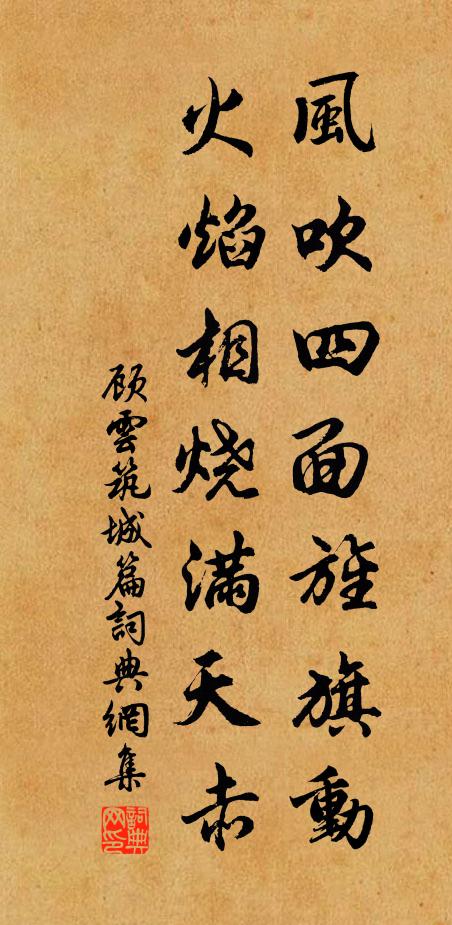 風吹四面旌旗動
火焰相烧满天赤
顾雲筑城篇詞典網集
詞典网印